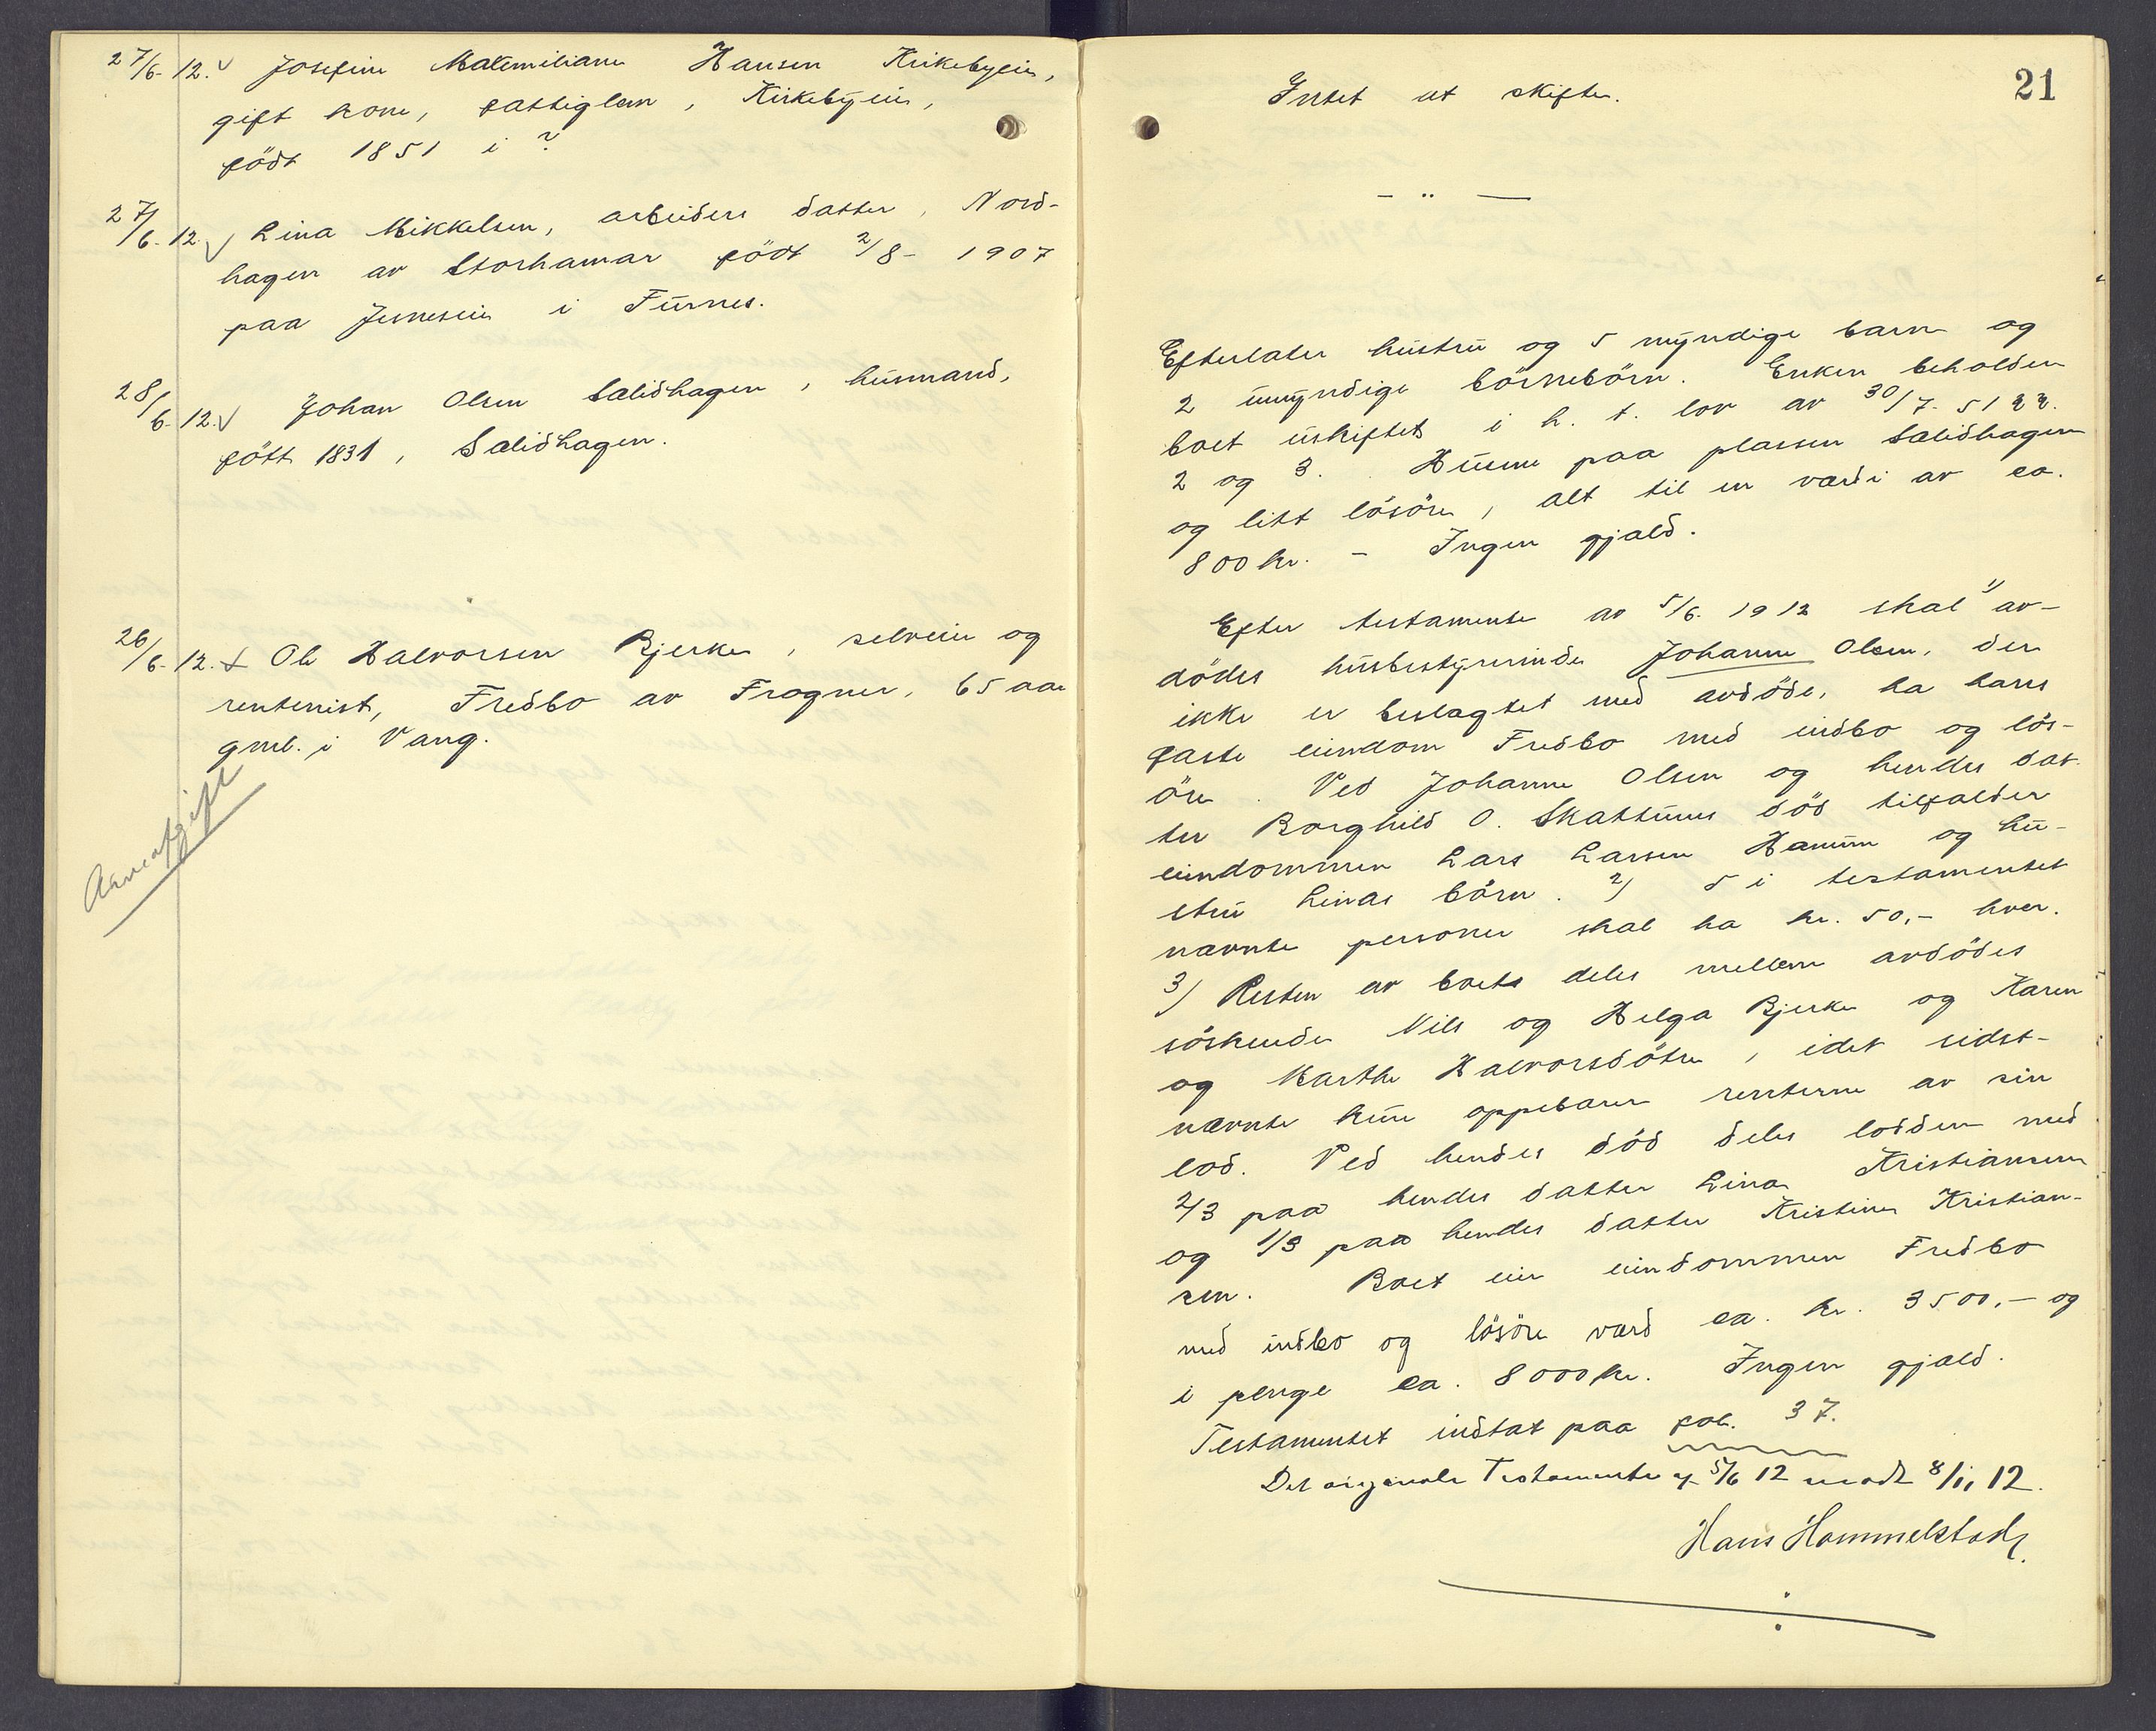 27/6-12. Josefine Maksmiliane Hansen Kirkebyeie,
gift kone, fattiglem, Kirkebyeie,
födt 1851 i ?
27/6-12. Lina Mikkelsen, arbeiders datter, Nord-
hagen av Storhamar födt 2/8- 1907
paa Jesneseie i Furnes.
28/6-12. Johan Olsen Sælidhagen, husmand,
fött 1831, Sælidhagen.
26/6-12. Ole Halvorsen Bjerke, selveier og
rentenist, Fredbo av Frogner, 65 aar
gml. i Vang.
Arveafgift
21
Intet at skifte.
- " -
Efterlater hustru og 5 myndige barn og
2 umyndige börnebörn. Enken beholder
boet uskiftet i h. t. lov av 30/7-51 §§.
2 og 3. Husene paa plassen Sælidhagen
og litt lösöre, alt til en værdi av ca.
800 kr. - Ingen gjæld.
Efter testamente av 5/6-1912 skal 1) av-
dödes husbestyrerinde Johanne Olsen, der
ikke er beslagtet med avdöde, ha hans
faste eiendom Fredbo med indbo og lös-
öre. Ved Johanne Olsen og hendes dat-
ter Borghild O. Skattums död tilfalder
eiendommen Lars Larsen Hamum og hu-
stru Linas börn. 2) 5 i testamentet
nævnte personer skal ha kr. 50,- hver.
3) Resten av boets deles mellem avdödes
söskende Nils og Helga Bjerke og Karen
og Marthe Halvorsdötre, idet sidst-
nævnte kun oppebærer renterne av sin
lod. Ved hendes död deles lodden med
2/3 paa hendes datter Lina Kristiansen
og 1/3 paa hendes datter Kristine Kristian-
sen. Boet eier eiendommen Fredbo
med indbo og lösöre værd ca. kr. 3500,- og
i penge ca. 8000 kr. Ingen gjæld.
Testamentet indtat paa fol. 37.
Det originale Testamente af 5/6 12 modt 8/11 12.
Hans Hommelstad